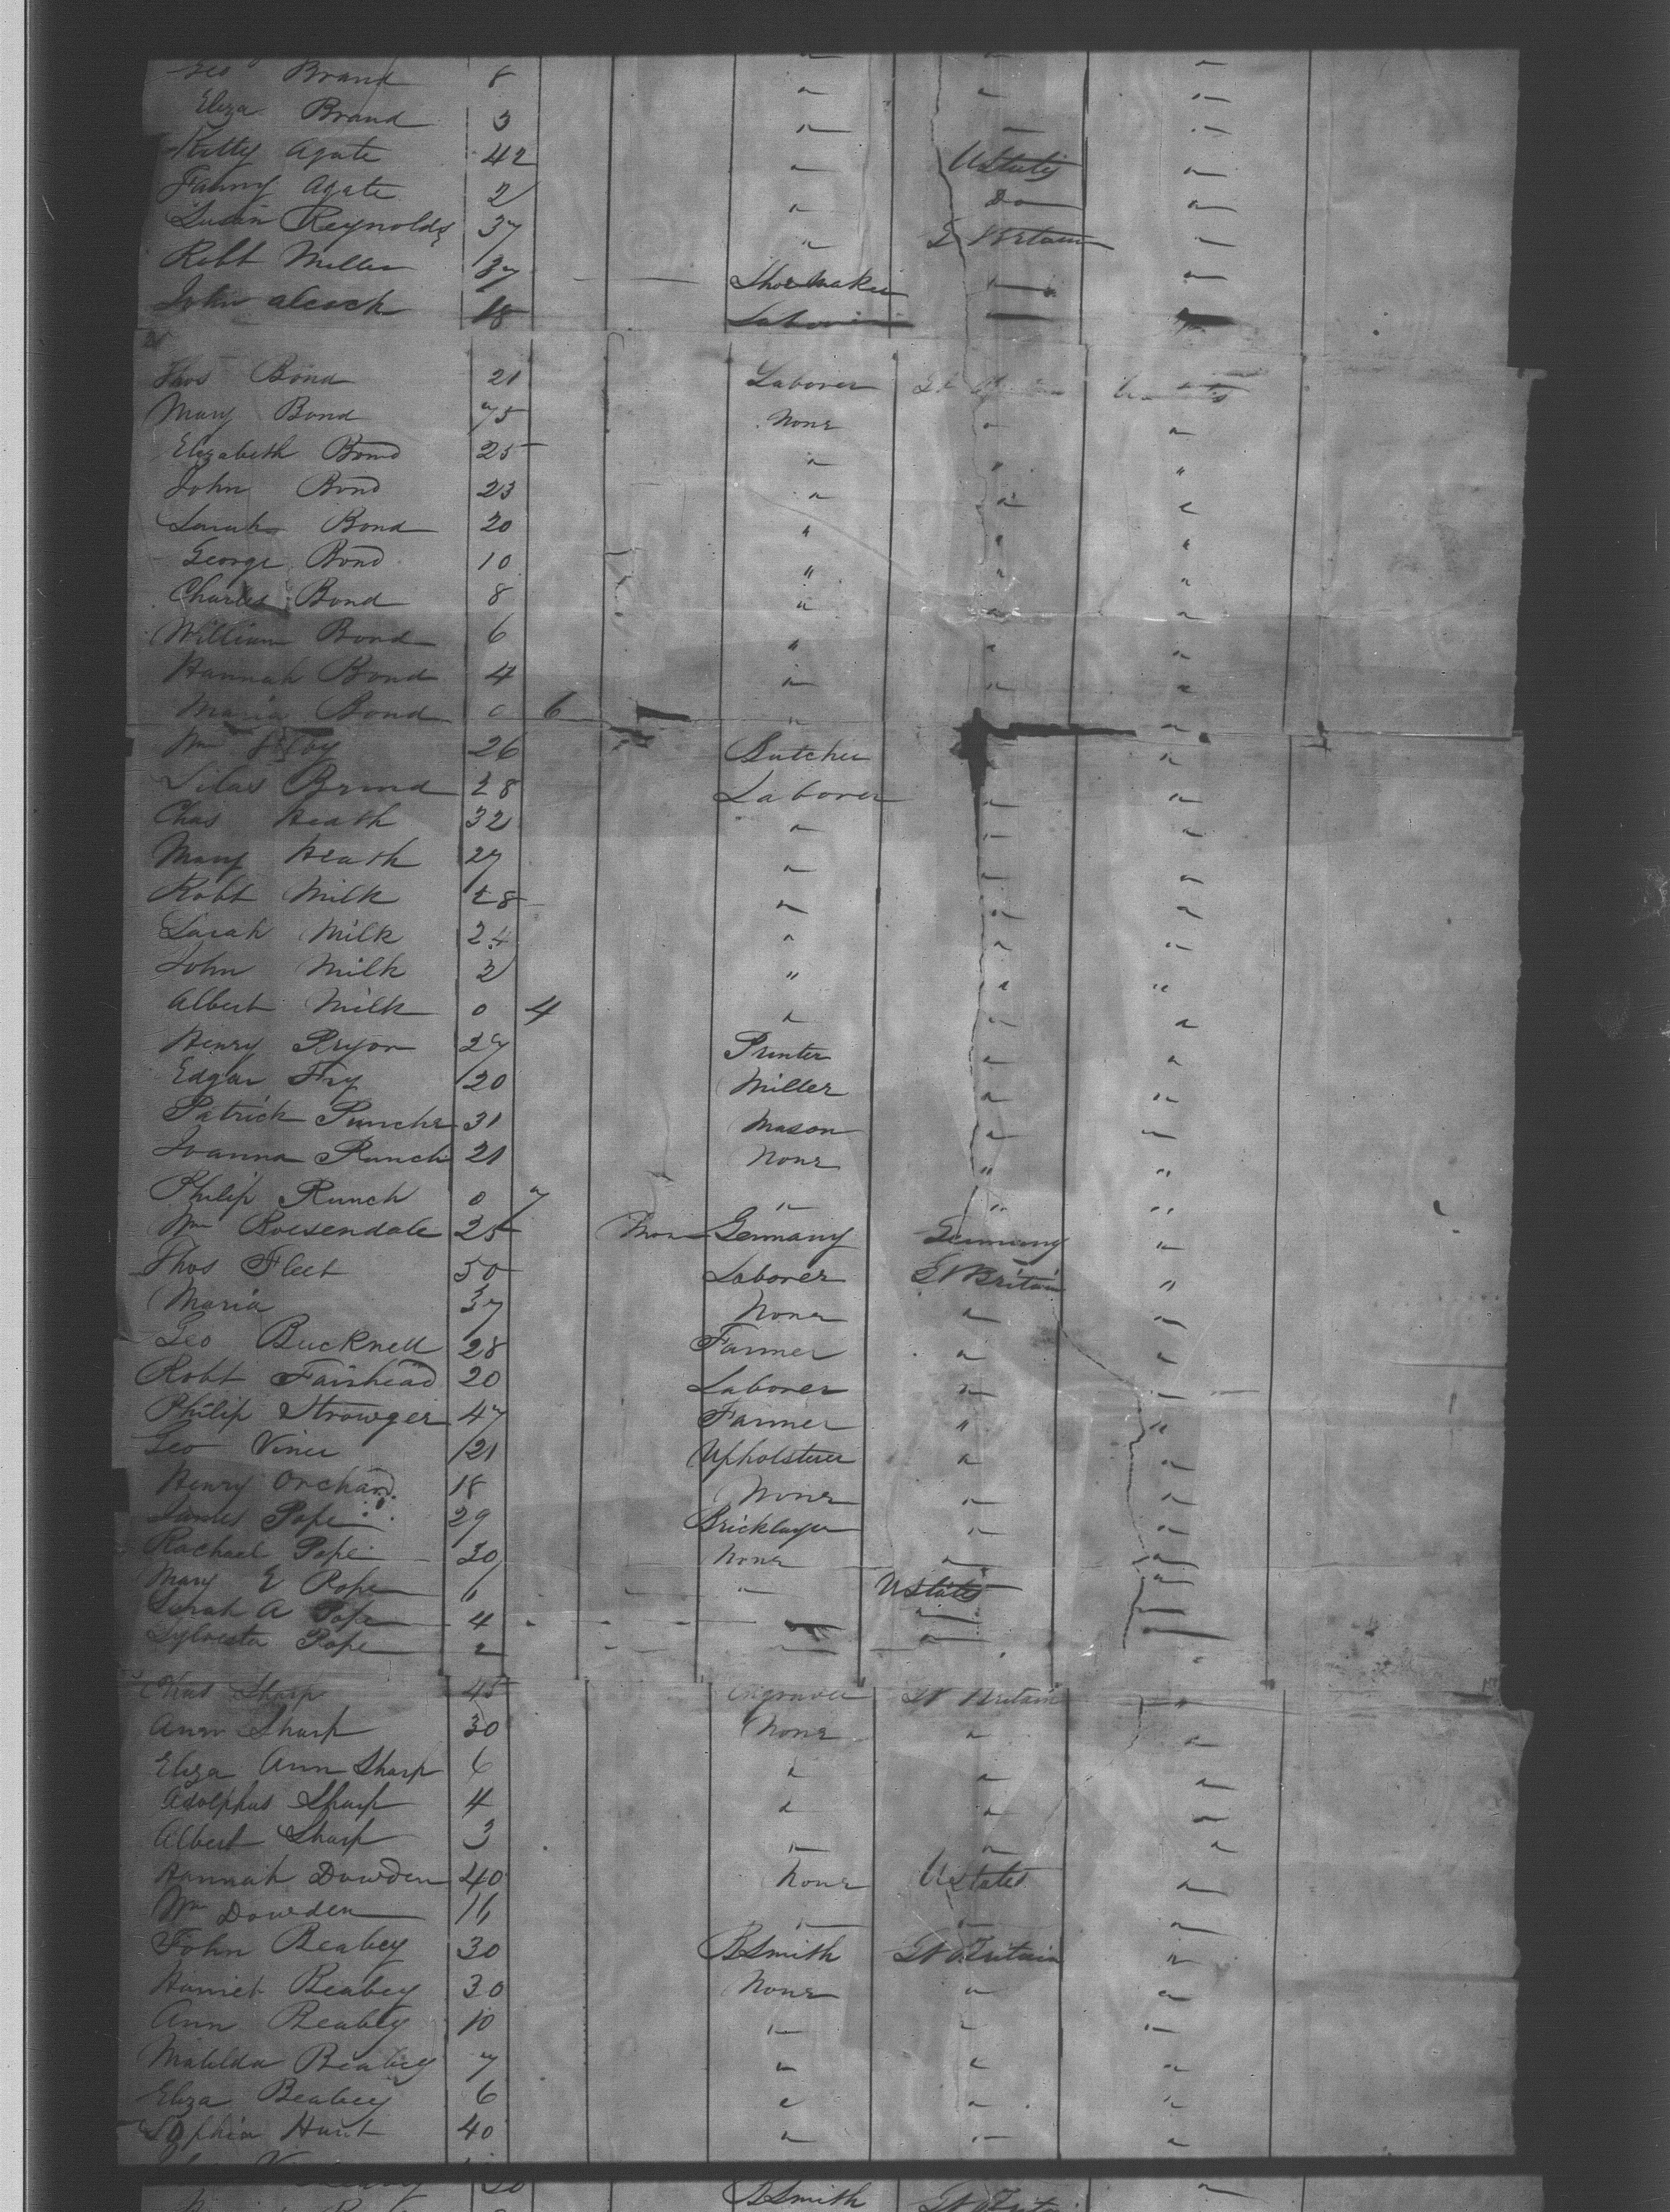 Geo Brand 8 " " "
Eliza Brand 3 " " "
Kitty Agate 42 " UStates "
Fanny Agate 2 " Do "
Susan Reynolds 37 " G Britain "
Robt Miller 37 Shoemaker " "
John Alcock 18 Laborer " "
Thos Bond 21 Laborer Gt Britain UStates
Mary Bond 75 None " "
Elizabeth Bond 25 " " "
John Bond 23 " " "
Sarah Bond 20 " " "
George Bond 10 " " "
Charles Bond 8 " " "
William Bond 6 " " "
Hannah Bond 4 " " "
Maria Bond 0 6 " "
Wm 26 Butcher " "
Silas Brind 28 Laborer " "
Chas Heath 32 " " "
Mary Heath 27 " " "
Robt Milk 28 " " "
Sarah Milk 24 " " "
John Milk 2 " " "
Albert Milk 0 4 " " "
Henry Pryor 27 Printer " "
Edgar Fry 20 Miller " "
Patrick Punch 31 Mason " "
Joanna Punch 21 None " "
Philip Punch 0 7 " " "
Wm Roesendale 25 Germany Germany "
Thos Fleet 50 Laborer Gt Britain "
Maria 37 None " "
Geo Bucknell 28 Farmer " "
Robt Fairhead 20 Laborer " "
Philip Strowger 47 Farmer " "
Geo Viner 21 Upholsterer " "
Henry Orchard 18 None " "
James Pope 29 Bricklayer " "
Rachael Pope 30 None " "
Mary E Pope 6 " UStates "
Sarah A Pope 4 " " "
Sylvester Pope 2 " " "
Chas Sharp 45 Engraver Gt Britain "
Ann Sharp 30 None " "
Eliza Ann Sharp 6 " " "
Adolphus Sharp 4 " " "
Albert Sharp 3 " " "
Hannah Dowden 40 None UStates "
Wm Dowden 16 " " "
John Beabey 30 BSmith Gt Britain "
Harriet Beabey 30 None " "
Ann Beabey 10 " " "
Matilda Beabey 7 " " "
Eliza Beabey 6 " " "
Sophia Hunt 40 " " "
30 BSmith Gt Brita "